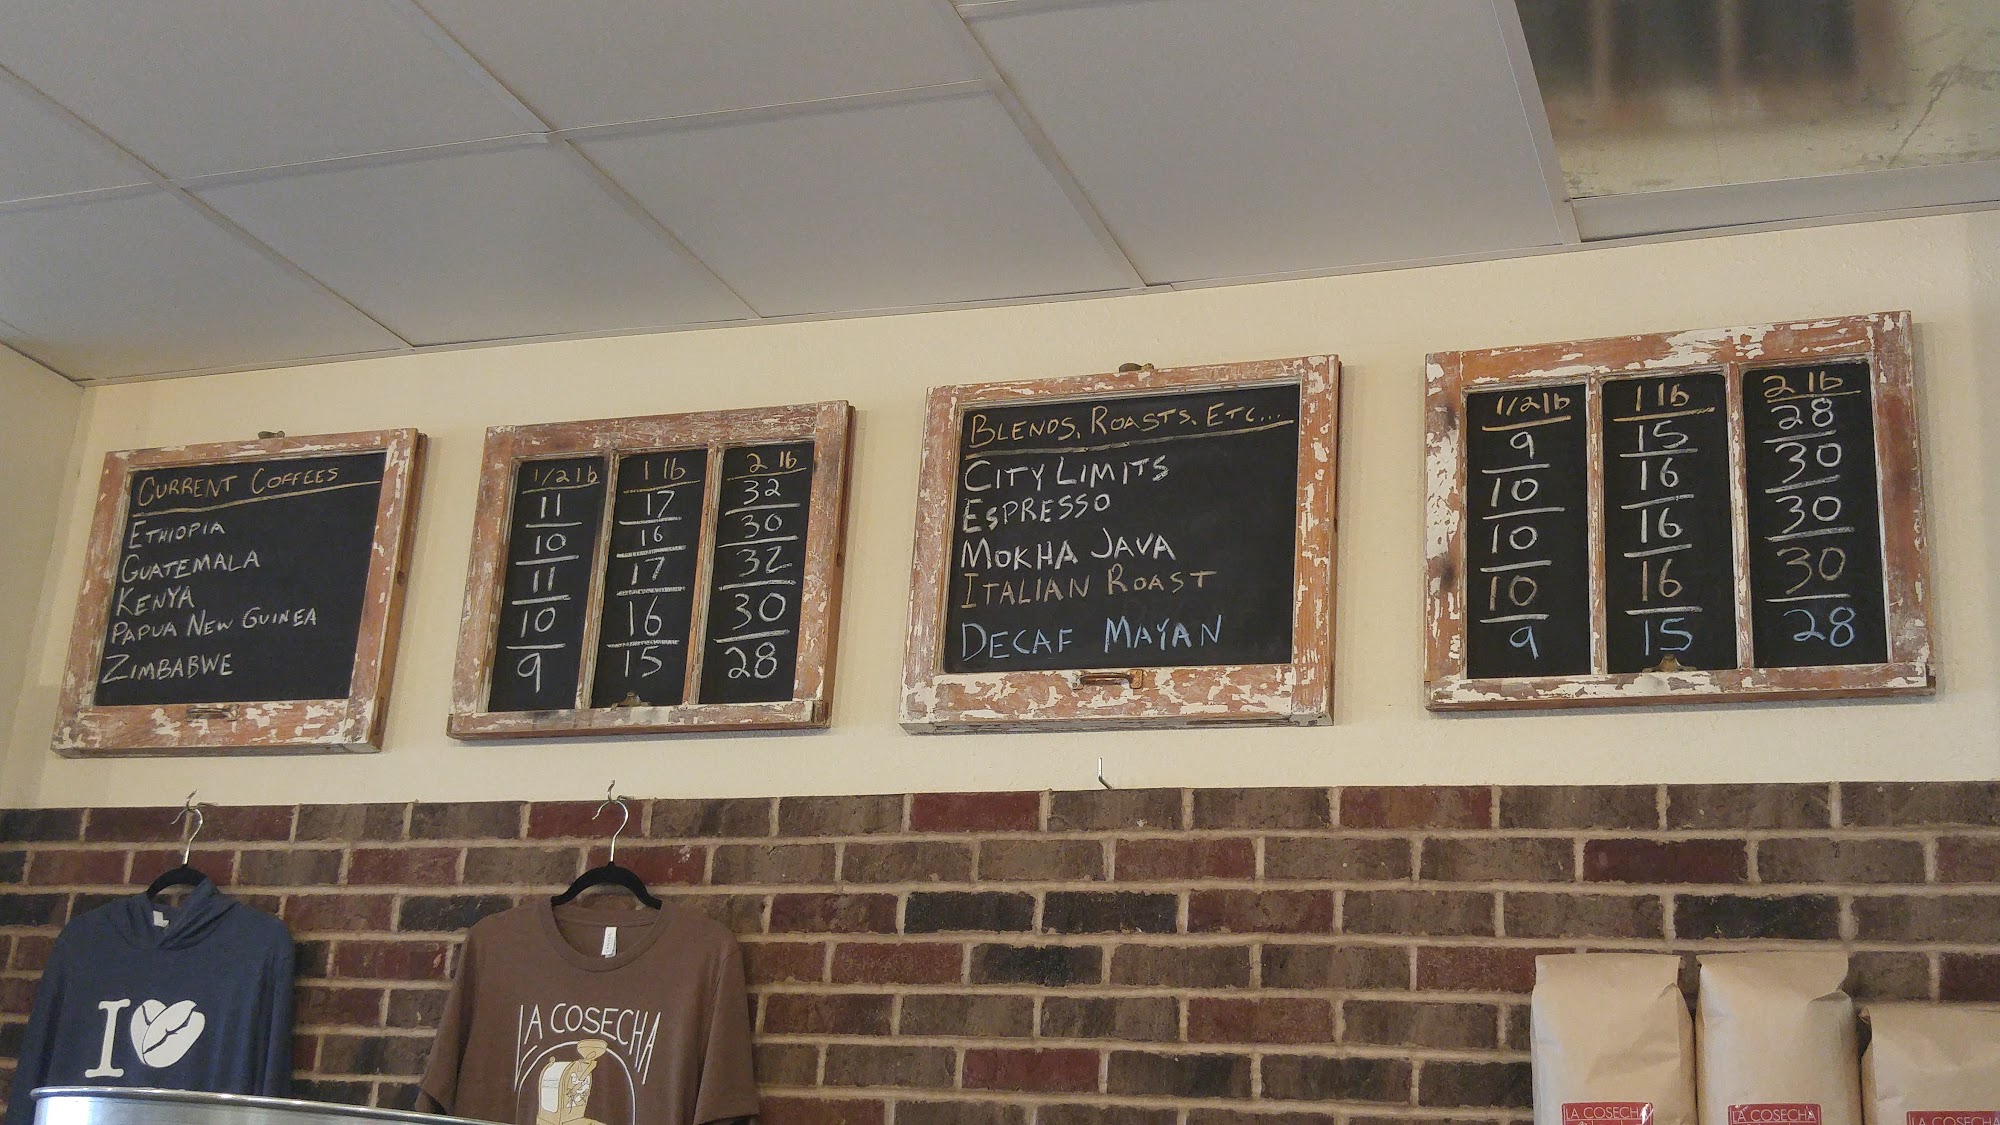 CURRENT COFFEES
ETHIOPIA
GUATEMALA
KENYA
PAPUA NEW GUINEA
ZIMBABWE
1/2 lb 1 lb 2 lb
11 17 32
10 16 30
11 17 32
10 16 30
9 15 28
BLENDS, ROASTS, ETC...
CITY LIMITS
ESPRESSO
MOKHA JAVA
ITALIAN ROAST
DECAF MAYAN
1/2 lb 1 lb 2 lb
9 15 28
10 16 30
10 16 30
10 16 30
9 15 28
I
LA COSECHA
LA COSECHA
LA COSECHA
LA COSECHA